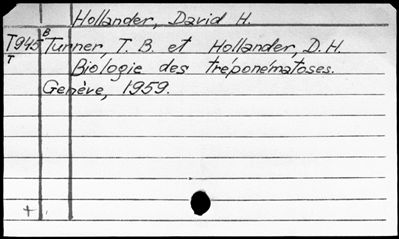 Hollander, David H.
B
T945 Turner, T. B. et Hollander, D. H.
T Biologie des tréponématoses.
Genève, 1959.
+